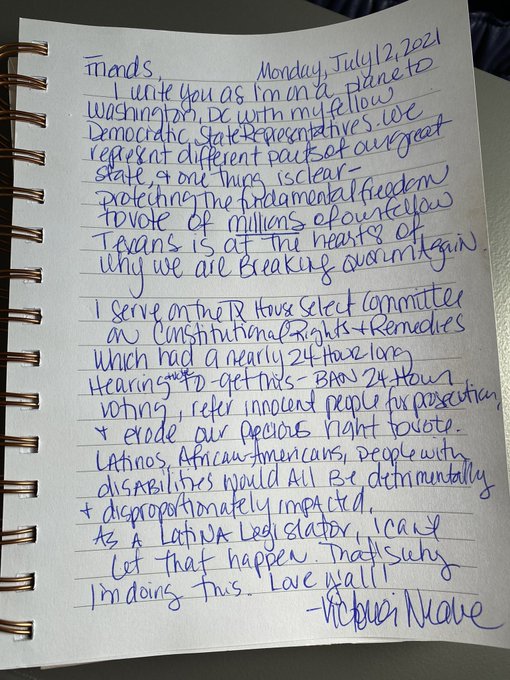 Friends, Monday, July 12, 2021
I write you as I'm on a plane to
Washington, DC with my fellow
Democratic State Representatives. We
represent different parts of our great
state, & one thing is clear-
protecting the fundamental freedom
to vote of millions of our fellow
Texans is at the heart of
why we are Breaking Quorum Again.
I serve on the TX House Select Committee
on Constitutional Rights & Remedies
which had a nearly 24 Hour long
Hearing to -get this- BAN 24 Hour
voting, refer innocent people for prosecution,
& erode our precious right to vote.
LAtinos, African-Americans, people with
disABilities would All Be detrimentally
& disproportionately impActed.
As A LatiNA Legislator, I can't
let that happen. That's why
I'm doing this. Love y'all!
-Victoria Neave